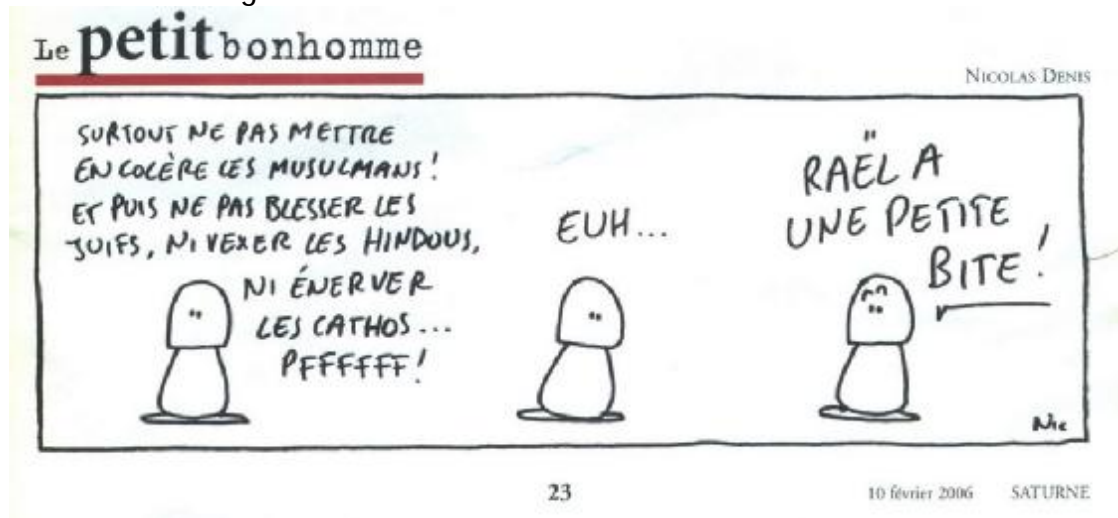 Le petit bonhomme
NICOLAS DENIS
SURTOUT NE PAS METTRE
EN COLÈRE LES MUSULMANS !
ET PUIS NE PAS BLESSER LES
JUIFS, NI VEXER LES HINDOUS,
NI ÉNERVER
LES CATHOS...
PFFFFFF !
EUH...
RAËL A
UNE PETITE
BITE !
Nic
23
10 février 2006 SATURNE